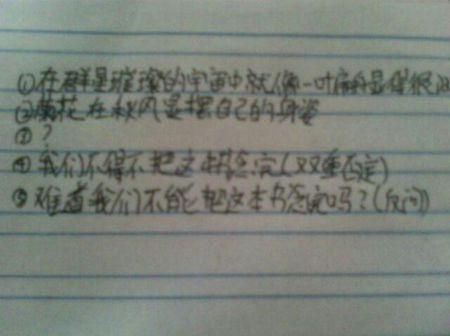 ①在群星璀璨的宇宙中就像一叶扁舟显得很渺
②菊花在秋风显摆自己的身姿
③?
④我们不得不把这本书念完(双重否定)
⑤难道我们不能把这本书念完吗?(反问)